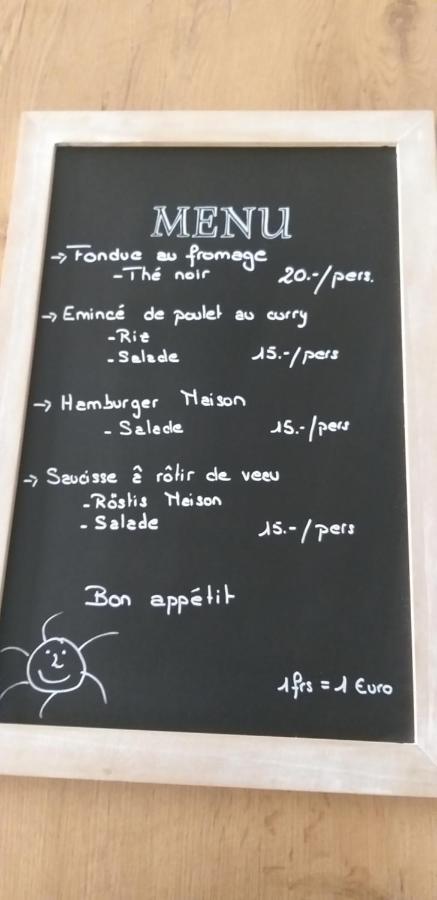 MENU
→ Fondue au fromage
- Thé noir 20.-/pers.
→ Emincé de poulet au curry
- Riz
- Salade 15.-/pers
→ Hamburger Maison
- Salade 15.-/pers
→ Saucisse à rôtir de veau
- Röstis Maison
- Salade 15.-/pers
Bon appétit
1 frs = 1 Euro